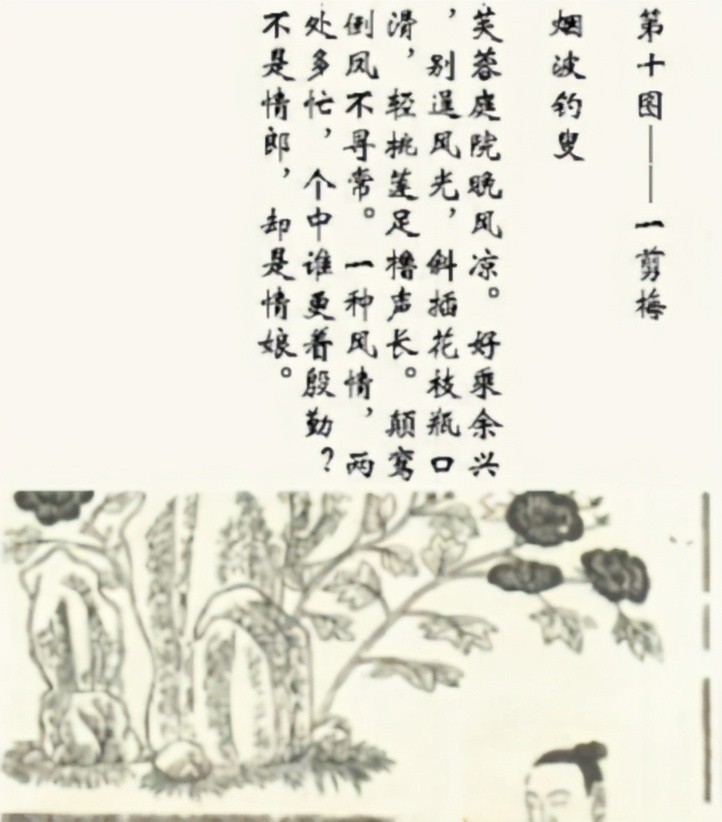 第十图——一剪梅
烟波钓叟
芙蓉庭院晚风凉。好乘余兴
，别逞风光，斜插花枝瓶口
滑，轻挑莲足橹声长。颠鸾
倒凤不寻常。一种风情，两
处多忙，个中谁更着殷勤？
不是情郎，却是情娘。